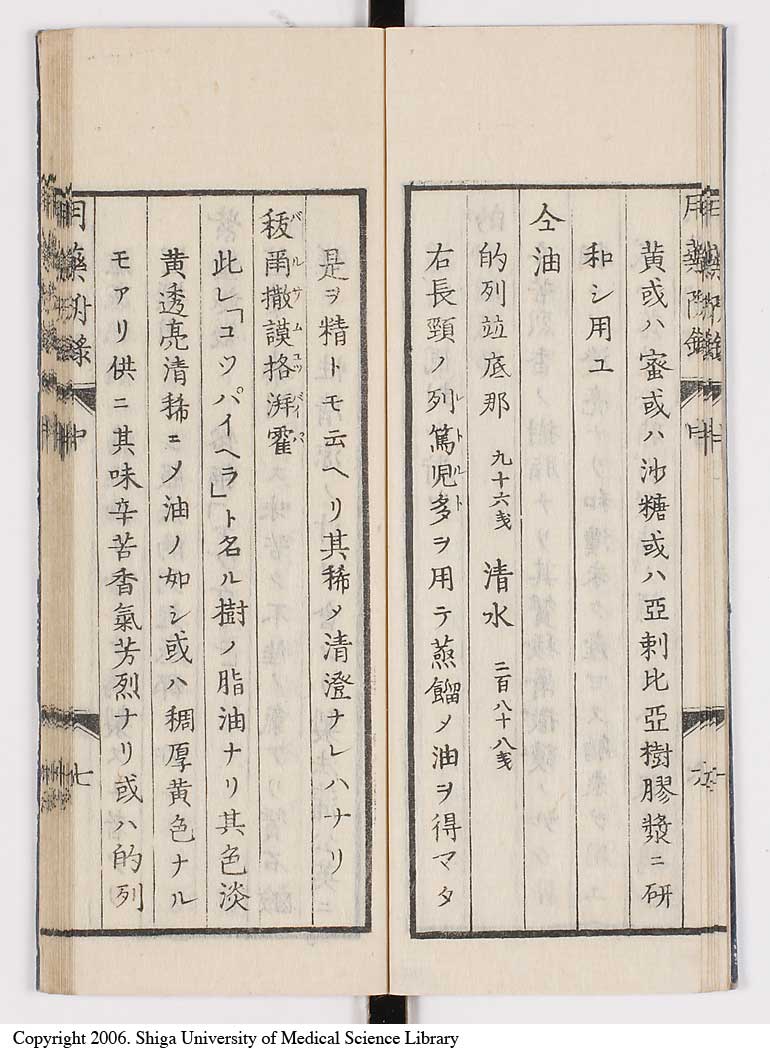 黄或ハ蜜或ハ沙糖或ハ亞剌比亞樹膠漿ニ研
和シ用ユ
仝油
的列竝底那 九十六戔 清水 二百八十八戔
右長頸ノ列篤児多ヲ用テ蒸餾〆油ヲ得マタ
レトルト
是ヲ精トモ云ヘリ其稀〆清澄ナレハナリ
拔爾撒謨格湃霍
バルサムコツパイバ
此レ「コツパイヘラ」ト名ル樹ノ脂油ナリ其色淡
黄透亮清稀ニ〆油ノ如シ或ハ稠厚黄色ナル
モアリ供ニ其味辛苦香氣芳烈ナリ或ハ的列
Copyright 2006. Shiga University of Medical Science Library